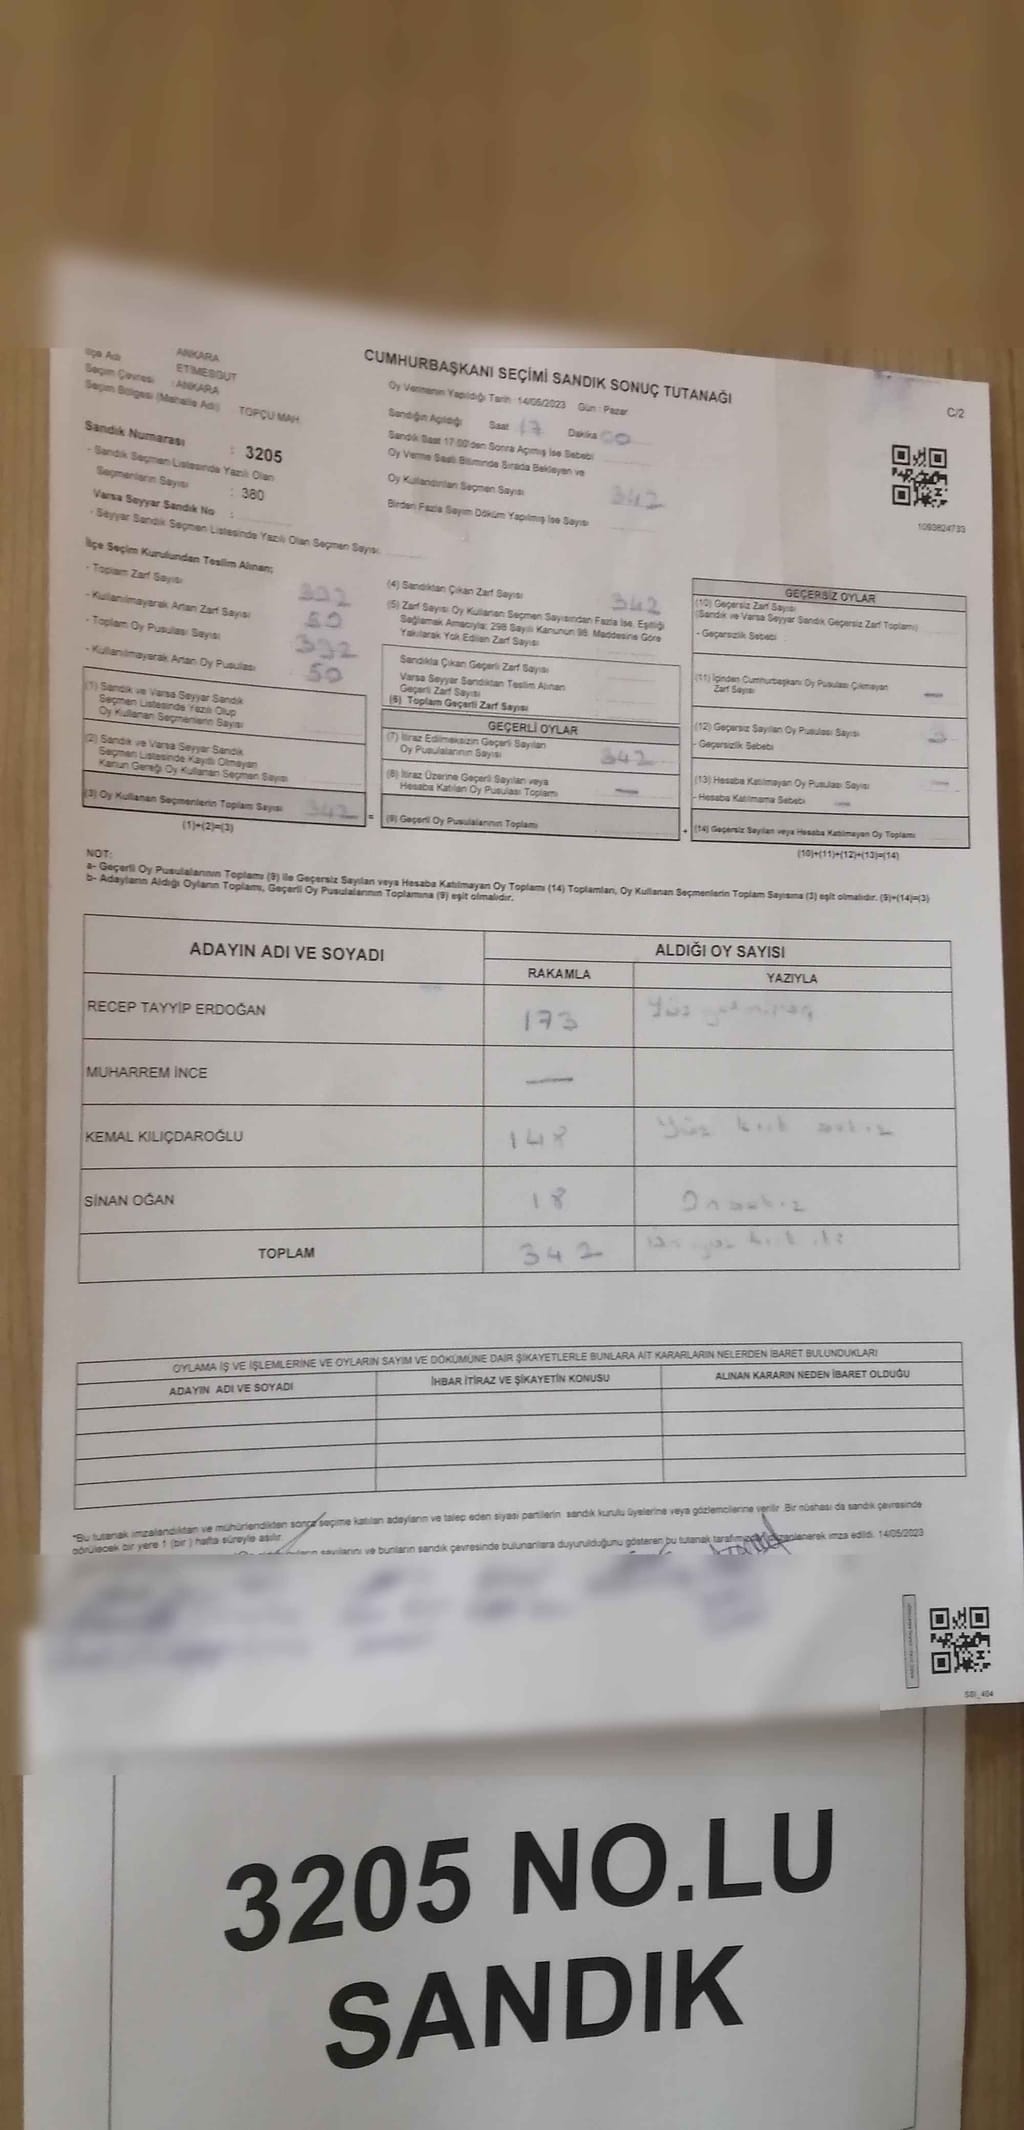 CUMHURBAŞKANI SEÇİMİ SANDIK SONUÇ TUTANAĞI
C/2
İlçe Adı ANKARA
ETİMESGUT
Seçim Çevresi : ANKARA
Seçim Bölgesi (Mahalle Adı) TOPÇU MAH.
Sandık Numarası : 3205
- Sandık Seçmen Listesinde Yazılı Olan
Seçmenlerin Sayısı : 380
Varsa Seyyar Sandık No :
- Seyyar Sandık Seçmen Listesinde Yazılı Olan Seçmen Sayısı:
Oy Vermenin Yapıldığı Tarih : 14/05/2023 Gün : Pazar
Sandığın Açıldığı Saat 17 Dakika 00
Sandık Saat 17:00'den Sonra Açılmış İse Sebebi
Oy Verme Saati Bitiminde Sırada Bekleyen ve
Oy Kullandırılan Seçmen Sayısı 342
Birden Fazla Sayım Döküm Yapılmış İse Sayısı
1093824733
İlçe Seçim Kurulundan Teslim Alınan;
- Toplam Zarf Sayısı
- Kullanılmayarak Artan Zarf Sayısı 50
- Toplam Oy Pusulası Sayısı
- Kullanılmayarak Artan Oy Pusulası 50
(1) Sandık ve Varsa Seyyar Sandık
Seçmen Listesinde Yazılı Olup
Oy Kullanan Seçmenlerin Sayısı
(2) Sandık ve Varsa Seyyar Sandık
Seçmen Listesinde Kayıtlı Olmayan
Kanun Gereği Oy Kullanan Seçmen Sayısı
(3) Oy Kullanan Seçmenlerin Toplam Sayısı 342
(1)+(2)=(3)
=
(4) Sandıktan Çıkan Zarf Sayısı 342
(5) Zarf Sayısı Oy Kullanan Seçmen Sayısından Fazla İse, Eşitliği
Sağlamak Amacıyla; 298 Sayılı Kanunun 98. Maddesine Göre
Yakılarak Yok Edilen Zarf Sayısı
Sandıkta Çıkan Geçerli Zarf Sayısı
Varsa Seyyar Sandıktan Teslim Alınan
Geçerli Zarf Sayısı
(6) Toplam Geçerli Zarf Sayısı
GEÇERLİ OYLAR
(7) İtiraz Edilmeksizin Geçerli Sayılan
Oy Pusulalarının Sayısı 342
(8) İtiraz Üzerine Geçerli Sayılan veya
Hesaba Katılan Oy Pusulası Toplamı —
(9) Geçerli Oy Pusulalarının Toplamı
+
GEÇERSİZ OYLAR
(10) Geçersiz Zarf Sayısı
(Sandık ve Varsa Seyyar Sandık Geçersiz Zarf Toplamı)
- Geçersizlik Sebebi :
(11) İçinden Cumhurbaşkanı Oy Pusulası Çıkmayan
Zarf Sayısı —
(12) Geçersiz Sayılan Oy Pusulası Sayısı
- Geçersizlik Sebebi
(13) Hesaba Katılmayan Oy Pusulası Sayısı —
- Hesaba Katılmama Sebebi —
(14) Geçersiz Sayılan veya Hesaba Katılmayan Oy Toplamı
(10)+(11)+(12)+(13)=(14)
NOT:
a- Geçerli Oy Pusulalarının Toplamı (9) ile Geçersiz Sayılan veya Hesaba Katılmayan Oy Toplamı (14) Toplamları, Oy Kullanan Seçmenlerin Toplam Sayısına (3) eşit olmalıdır. (9)+(14)=(3)
b- Adayların Aldığı Oyların Toplamı, Geçerli Oy Pusulalarının Toplamına (9) eşit olmalıdır.
ADAYIN ADI VE SOYADI ALDIĞI OY SAYISI
RAKAMLA YAZIYLA
RECEP TAYYİP ERDOĞAN 173 Yüz
MUHARREM İNCE —
KEMAL KILIÇDAROĞLU 148 Yüz kırk sekiz
SİNAN OĞAN 18 Onsekiz
TOPLAM 342 kırk iki
OYLAMA İŞ VE İŞLEMLERİNE VE OYLARIN SAYIM VE DÖKÜMÜNE DAİR ŞİKAYETLERLE BUNLARA AİT KARARLARIN NELERDEN İBARET BULUNDUKLARI
ADAYIN ADI VE SOYADI İHBAR İTİRAZ VE ŞİKAYETİN KONUSU ALINAN KARARIN NEDEN İBARET OLDUĞU
"Bu tutanak imzalandıktan ve mühürlendikten sonra seçime katılan adayların ve talep eden siyasi partilerin sandık kurulu üyelerine veya gözlemcilerine verilir. Bir nüshası da sandık çevresinde
görülecek bir yere 1 (bir) hafta süreyle asılır.
sayılarını ve bunların sandık çevresinde bulunanlara duyurulduğunu gösteren bu tutanak tarafımızdan düzenlenerek imza edildi. 14/05/2023
SSI_404
3205 NO.LU
SANDIK